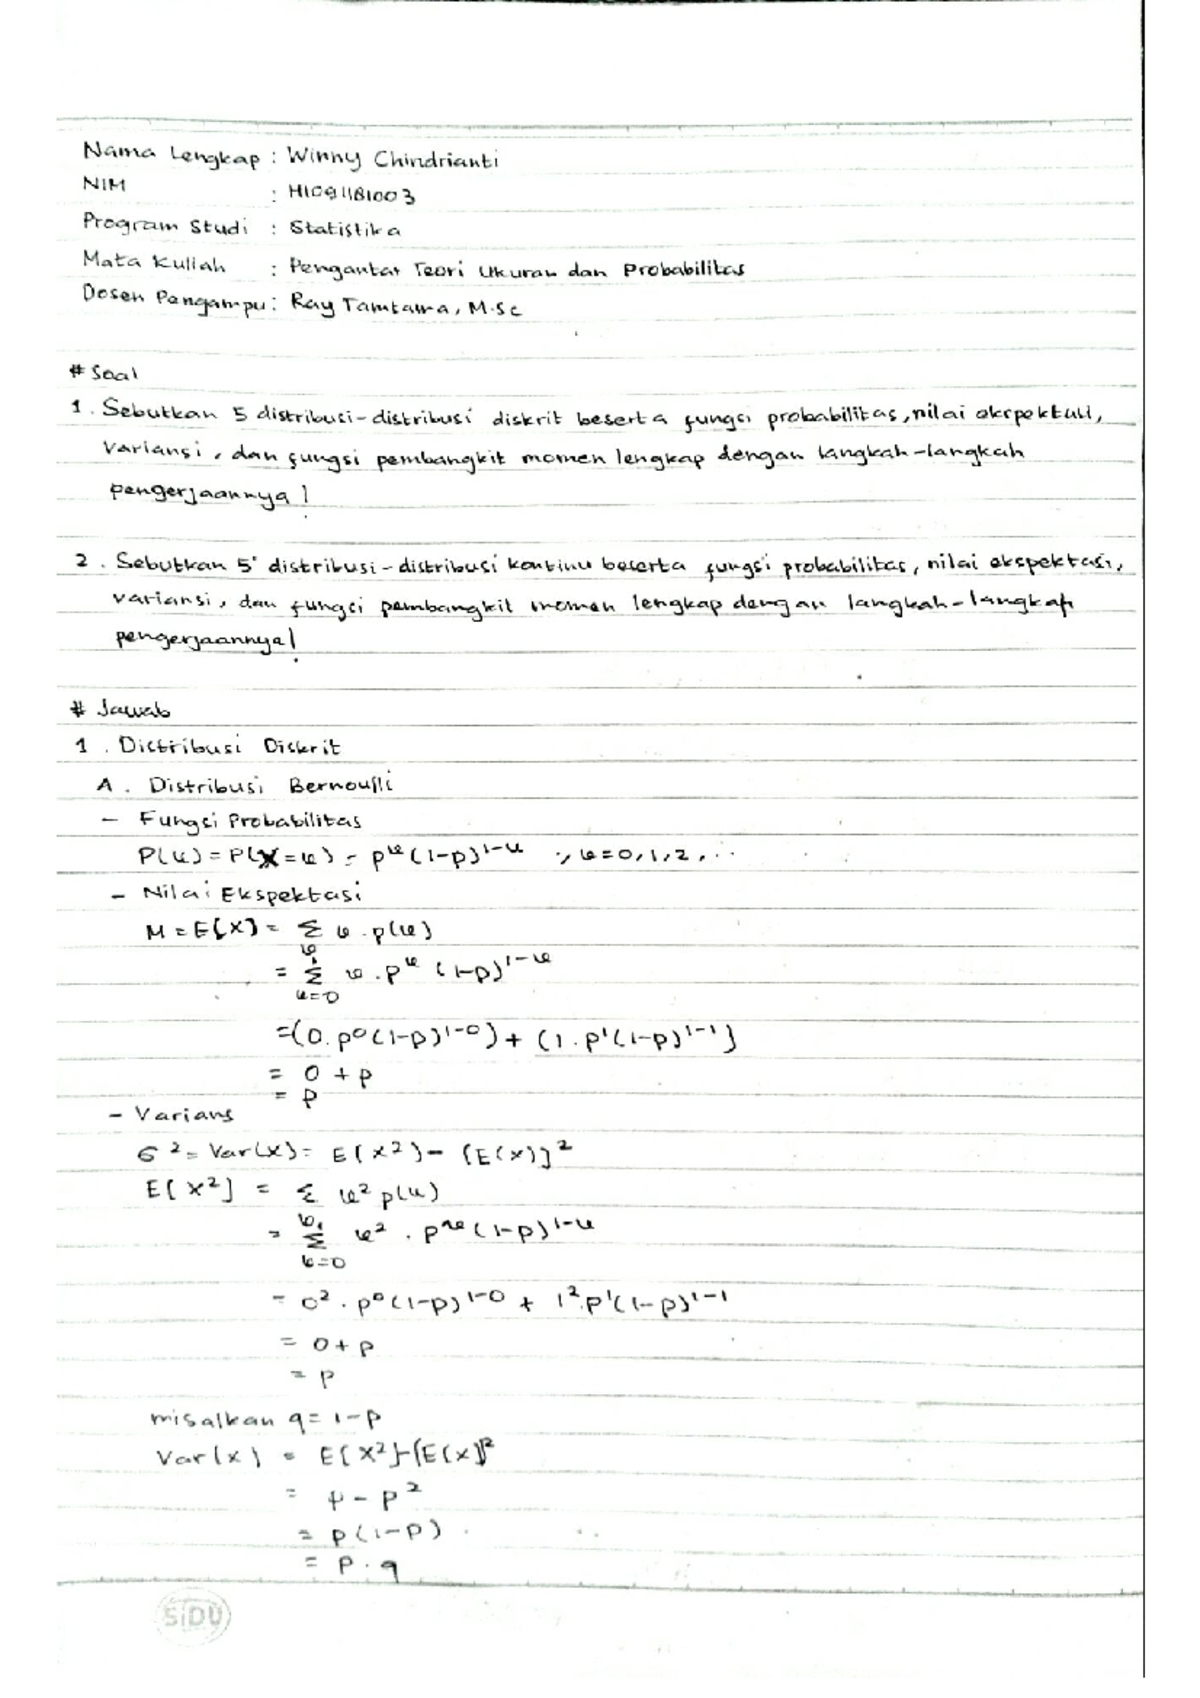 Nama Lengkap : Winny Chindrianti
NIM : H1091181003
Program Studi : Statistika
Mata Kuliah : Pengantar Teori Ukuran dan Probabilitas
Dosen Pengampu : Ray Tamtama, M.Sc
# Soal
1. Sebutkan 5 distribusi-distribusi diskrit beserta fungsi probabilitas, nilai ekspektasi,
variansi, dan fungsi pembangkit momen lengkap dengan langkah-langkah
pengerjaannya!
2. Sebutkan 5 distribusi-distribusi kontinu beserta fungsi probabilitas, nilai ekspektasi,
variansi, dan fungsi pembangkit momen lengkap dengan langkah-langkah
pengerjaannya!
# Jawab
1. Distribusi Diskrit
A. Distribusi Bernoulli
- Fungsi Probabilitas
P(k) = P(X=k) = p^k (1-p)^1-k ; k=0,1,2,..
- Nilai Ekspektasi
M = E[X] = Σ k . p(k)
= Σ k=0 k . p^k (1-p)^1-k
= (0. p^0 (1-p)^1-0) + (1. p^1 (1-p)^1-1)
= 0 + p
= p
- Varians
σ^2 = Var(X) = E[X^2] - [E(X)]^2
E[X^2] = Σ k^2 p(k)
= Σ k=0 k^2 . p^k (1-p)^1-k
= 0^2 . p^0 (1-p)^1-0 + 1^2 . p^1 (1-p)^1-1
= 0 + p
= p
misalkan q = 1-p
Var(X) = E[X^2] - [E(X)]^2
= p - p^2
= p(1-p)
= p . q
SiDU